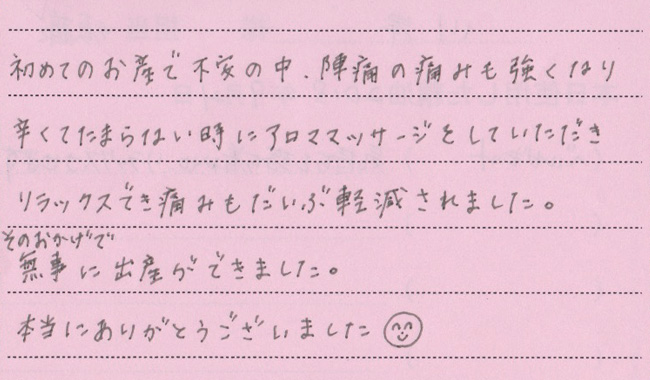 初めてのお産で不安の中、陣痛の痛みも強くなり
辛くてたまらない時にアロママッサージをしていただき
リラックスでき痛みもだいぶ軽減されました。
そのおかげで
無事に出産ができました。
本当にありがとうございました